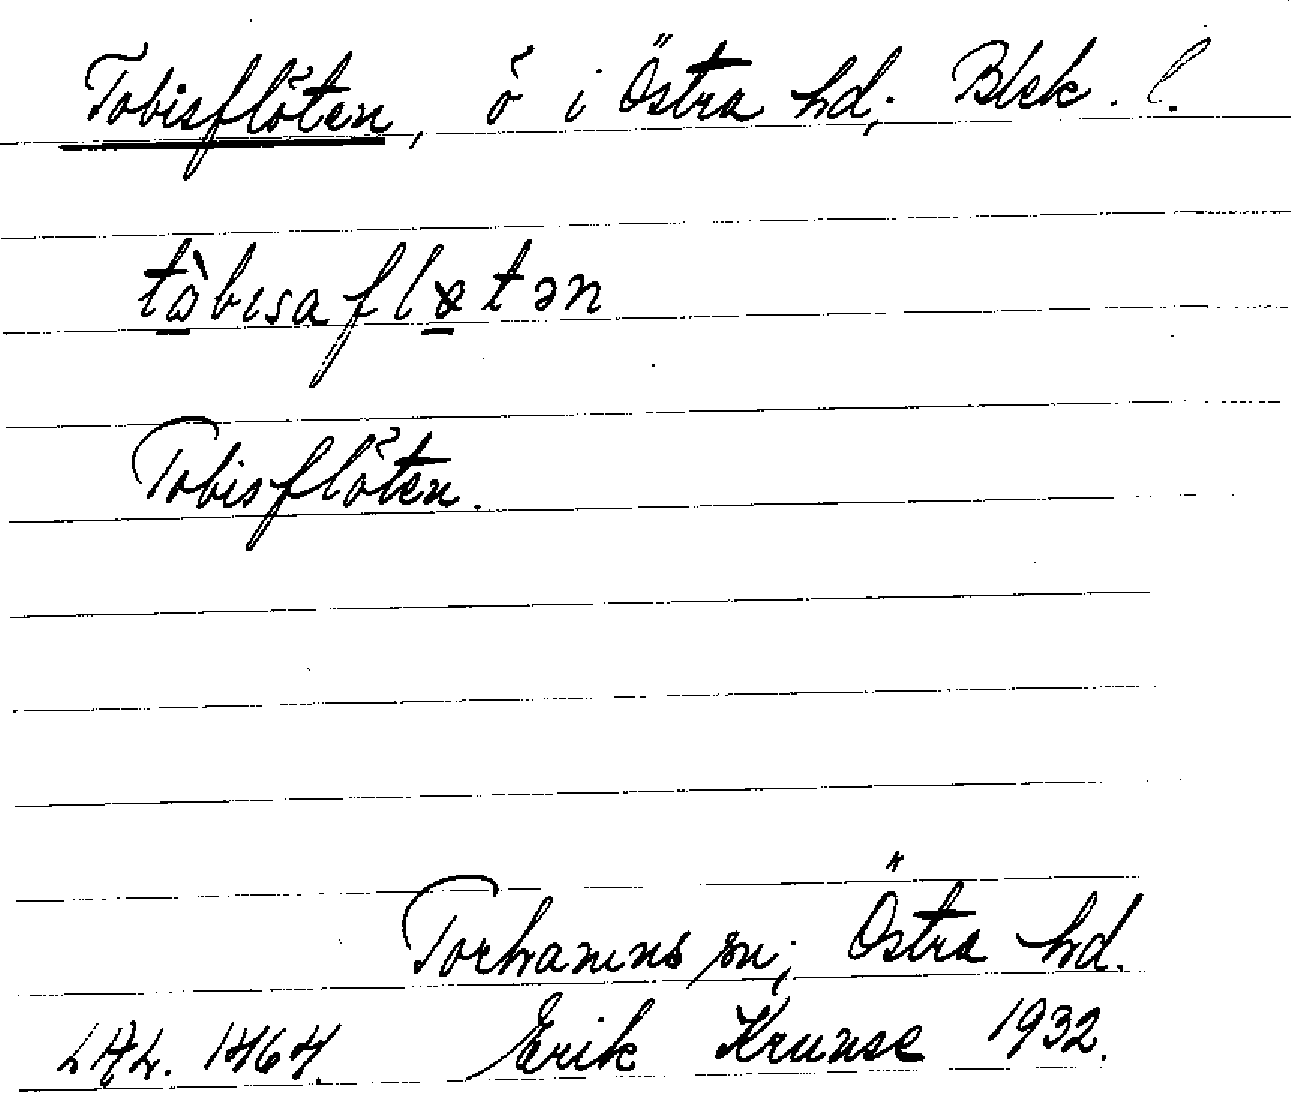 Tobisflöten, ö i Östra hd, Blek. l.
tòbɩsaflɵtən
Tobisflöten.
Torhamns sn, Östra hd.
LAL. 1464. Erik Krunse 1932.